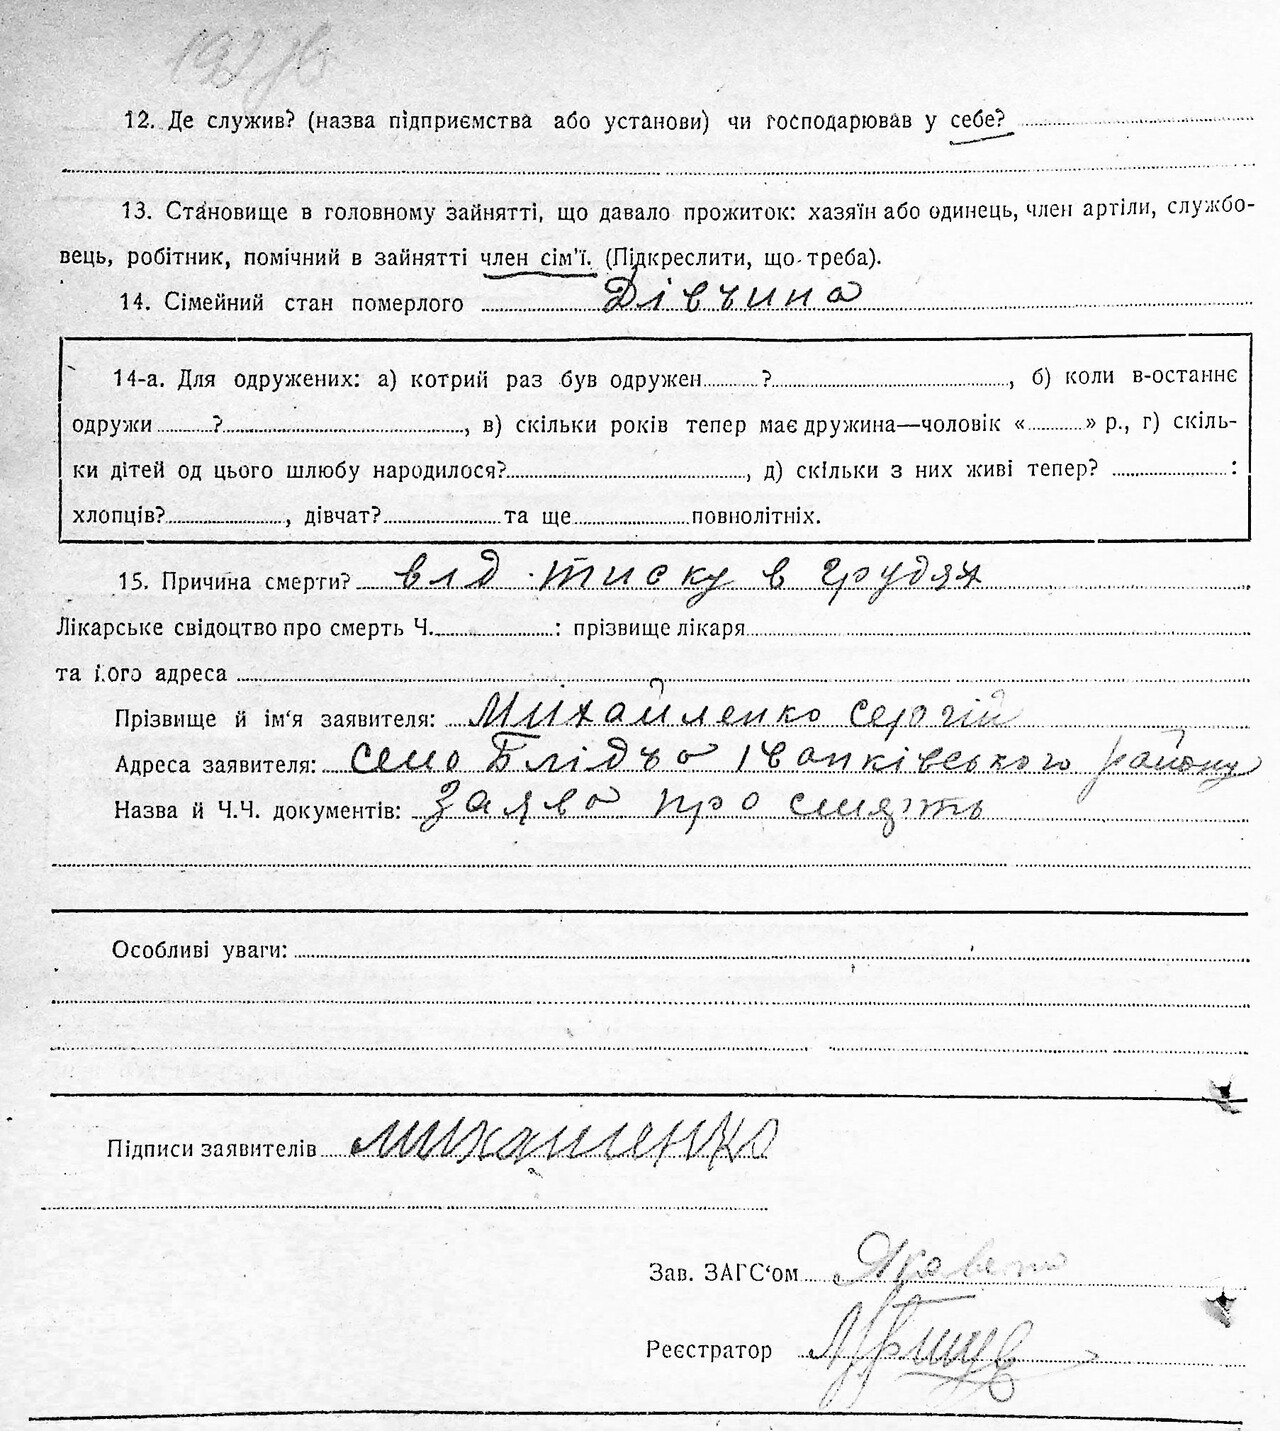 12. Де служив? (назва підприємства або установи) чи господарював у себе?
13. Становище в головному зайнятті, що давало прожиток: хазяїн або одинець, член артіли, службо-
вець, робітник, помічний в зайнятті член сім'ї. (Підкреслити, що треба).
14. Сімейний стан померлого Дівчина
14-а. Для одружених: а) котрий раз був одружен ?, б) коли в-останнє
одружи ?, в) скільки років тепер має дружина—чоловік « » р., г) скіль-
ки дітей од цього шлюбу народилося?, д) скільки з них живі тепер? :
хлопців?, дівчат? та ще повнолітніх.
15. Причина смерти? влд тиску в грудях
Лікарське свідоцтво про смерть Ч. : прізвище лікаря
та його адреса
Прізвище й ім'я заявителя: Михайленко Сергій
Адреса заявителя: село Блідча Іванківського району
Назва й Ч.Ч. документів: Заява про смерть
Особливі уваги:
Підписи заявителів Михайленко
Зав. ЗАГС'ом
Реєстратор